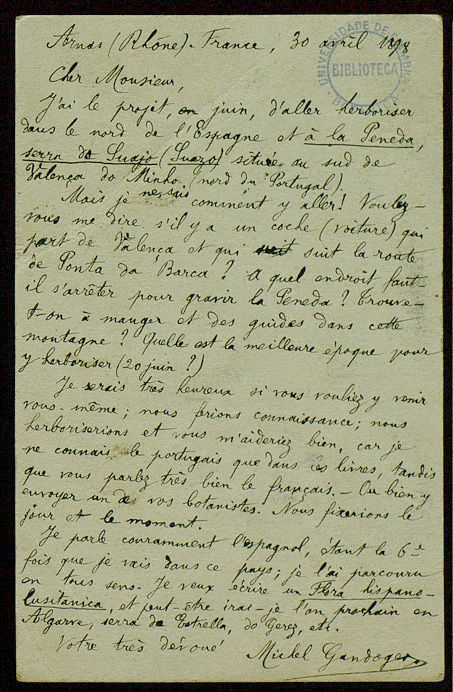 Arnas (Rhône). France, 30 avril 1898
UNIVERSIDADE DE
BIBLIOTECA
Cher Monsieur,
J'ai le projet, en juin, d'aller herboriser
dans le nord de l'Espagne et à la Peneda,
serra do Suajo (Suazo) située au sud de
Valença do Minho (nord du Portugal).
Mais je ne sais comment y aller! Voulez-
vous me dire s'il y a un coche (voiture) qui
part de Valença et qui suit la route
de Ponta da Barca? A quel endroit faut-
il s'arrêter pour gravir la Peneda? Trouve-
t-on à manger et des guides dans cette
montagne? Quelle est la meilleure époque pour
y herboriser (20 juin?)
Je serais très heureux si vous vouliez y venir
vous-même; nous ferions connaissance; nous
herboriserions et vous m'aideriez bien, car je
ne connais le portugais que dans les livres, tandis
que vous parlez très bien le français. - Ou bien y
envoyer un de vos botanistes. Nous fixerions le
jour et le moment.
Je parle couramment l'espagnol, étant la 6e
fois que je vais dans ce pays; je l'ai parcouru
en tous sens. Je veux écrire un Flora hispano-
Lusitanica, et peut-être irai-je l'an prochain en
Algarve, serra da Estrella, do Gerez, etc.
Votre très dévoué
Michel Gandoger